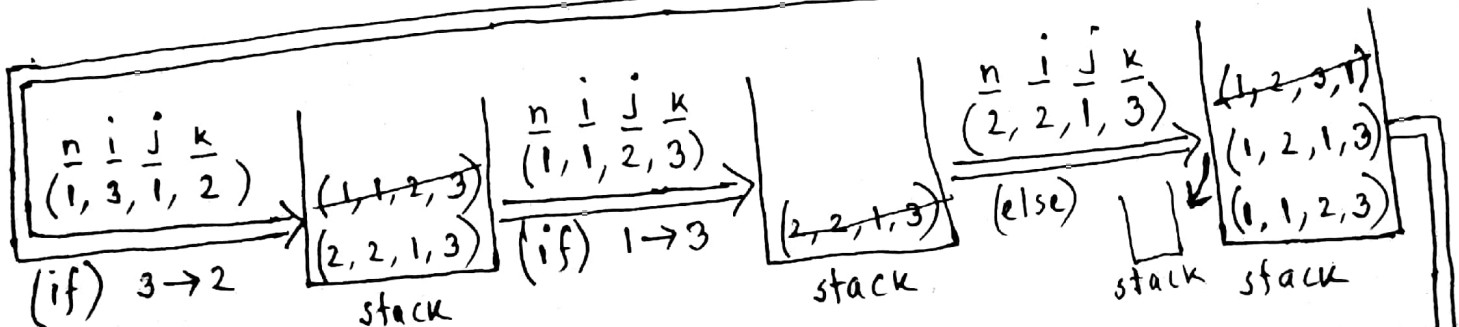 n i j k
(1, 3, 1, 2)
(if) 3→2
(1, 1, 2, 3)
(2, 2, 1, 3)
stack
n i j k
(1, 1, 2, 3)
(if) 1→3
(2, 2, 1, 3)
stack
n i j k
(2, 2, 1, 3)
(else)
stack
(1, 2, 3, 1)
(1, 2, 1, 3)
(1, 1, 2, 3)
stack